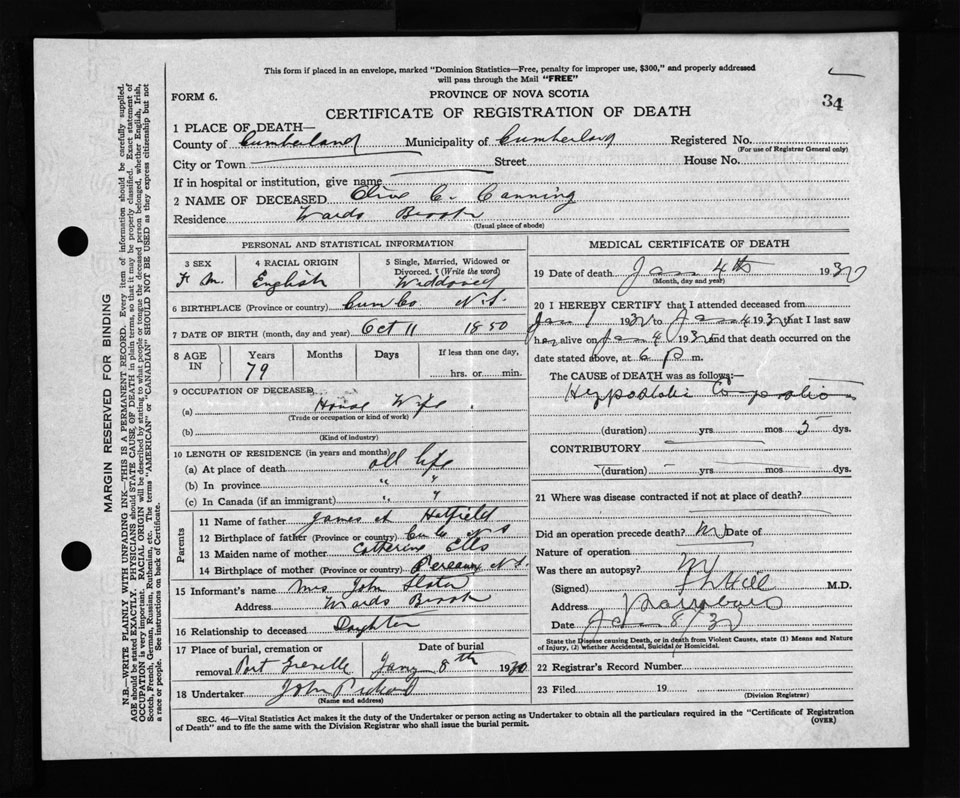 This form if placed in an envelope, marked "Dominion Statistics—Free, penalty for improper use, $300," and properly addressed
will pass through the Mail "FREE"
FORM 6.
PROVINCE OF NOVA SCOTIA
34
CERTIFICATE OF REGISTRATION OF DEATH
1 PLACE OF DEATH—
County of Cumberland Municipality of Cumberland Registered No.
(For use of Registrar General only)
City or Town Street House No.
If in hospital or institution, give name
2 NAME OF DECEASED Olive C. Canning
Residence Wards Brook
(Usual place of abode)
PERSONAL AND STATISTICAL INFORMATION
3 SEX 4 RACIAL ORIGIN 5 Single, Married, Widowed or
Divorced. (Write the word)
F M. English Widdowed
6 BIRTHPLACE (Province or country) Cum Co. N.S.
7 DATE OF BIRTH (month, day and year) Oct 11 1850
8 AGE IN Years Months Days If less than one day,
79 hrs. or min.
9 OCCUPATION OF DECEASED
(a) House Wife.
(Trade or occupation or kind of work)
(b)
(Kind of industry)
10 LENGTH OF RESIDENCE (in years and months)
(a) At place of death all life
(b) In province " "
(c) In Canada (if an immigrant) " "
Parents
11 Name of father James A Hatfield
12 Birthplace of father (Province or country) Cum Co N S
13 Maiden name of mother Catherine Ells
14 Birthplace of mother (Province or country) N.S.
15 Informant's name Mrs John Slater
Address Wards Brook
16 Relationship to deceased Daughter
17 Place of burial, cremation or Date of burial
removal Port Greville Jany 8th 1930
18 Undertaker John
(Name and address)
MEDICAL CERTIFICATE OF DEATH
19 Date of death Jan 4th 1930
(Month, day and year)
20 I HEREBY CERTIFY that I attended deceased from
Jan 1 1930 to Jan 4 1930 that I last saw
her alive on Jan 4 1930 and that death occurred on the
date stated above, at 6 p m.
The CAUSE of DEATH was as follows:—
Hypostatic
(duration) yrs mos 5 dys.
CONTRIBUTORY
(duration) yrs. mos dys.
21 Where was disease contracted if not at place of death?
Did an operation precede death? No Date of
Nature of operation
Was there an autopsy? N
(Signed) Hill M.D.
Address Parrsboro
Date Jan 8/30
State the Disease causing Death, or in death from Violent Causes, state (1) Means and Nature
of Injury, (2) whether Accidental, Suicidal or Homicidal.
22 Registrar's Record Number
23 Filed 19
(Division Registrar)
SEC. 46—Vital Statistics Act makes it the duty of the Undertaker or person acting as Undertaker to obtain all the particulars required in the "Certificate of Registration
of Death" and to file the same with the Division Registrar who shall issue the burial permit.
(OVER)
MARGIN RESERVED FOR BINDING
N.B.—WRITE PLAINLY WITH UNFADING INK—THIS IS A PERMANENT RECORD. Every item of information should be carefully supplied.
AGE should be stated EXACTLY. PHYSICIANS should STATE CAUSE OF DEATH in plain terms, so that it may be properly classified. Exact statement of
OCCUPATION is very important. RACIAL ORIGIN will be described by stating to what people or tongue the deceased person belonged, whether English, Irish,
Scotch, French, German, Russian, Ruthenian, etc. The terms "AMERICAN" or "CANADIAN" SHOULD NOT BE USED as they express citizenship but not
a race or people. See instructions on back of Certificate.